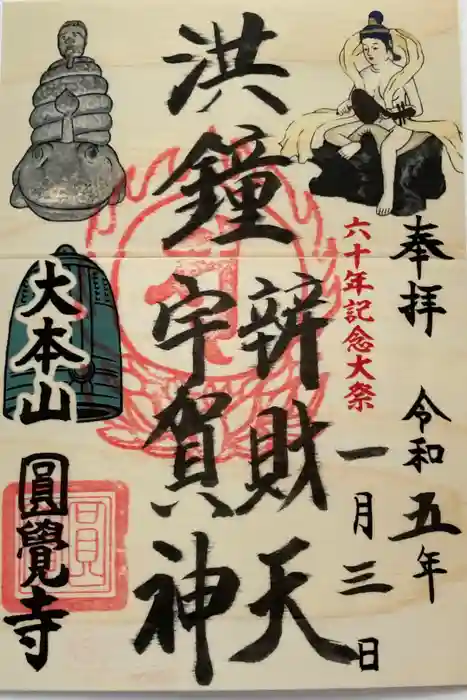 奉拝
令和五年
一月三日
六十年記念大祭
洪鐘
辨財天
宇賀神
大本山
圓覺寺
圓